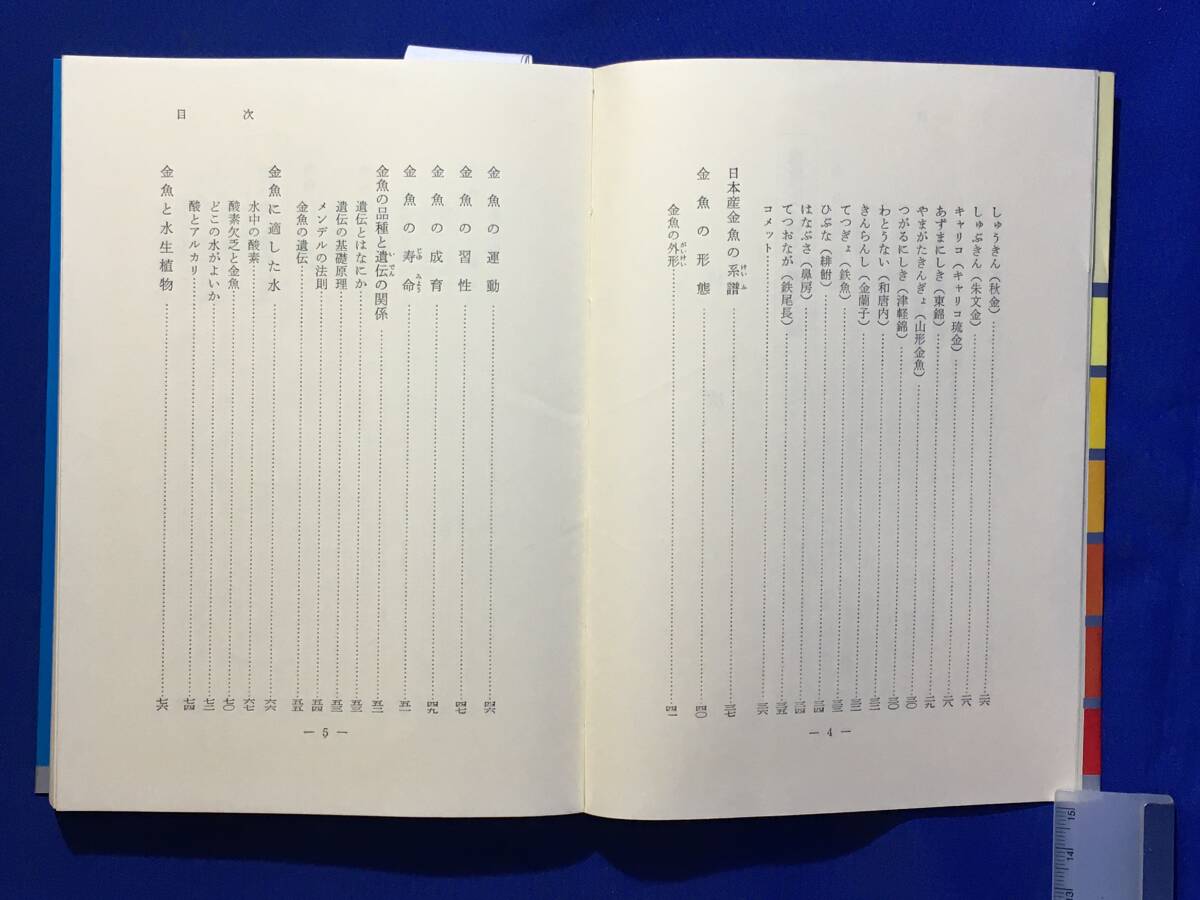 しゅうきん（秋金）……二六
しゅぶきん（朱文金）……二八
キャリコ（キャリコ琉金）……二八
あずまにしき（東錦）……二九
やまがたきんぎょ（山形金魚）……三〇
つがるにしき（津軽錦）……三〇
わとうない（和唐内）……三二
きんらんし（金蘭子）……三二
てつぎょ（鉄魚）……三三
ひぶな（緋鮒）……三四
はなぶさ（鼻房）……三四
てつおなが（鉄尾長）……三五
コメット……三六
日本産金魚の系譜……三七
金魚の形態……四〇
金魚の外形……四一
— 4 —
目次
金魚の運動……四六
金魚の習性……四七
金魚の成育……四九
金魚の寿命……五一
金魚の品種と遺伝の関係……五二
遺伝とはなにか……五三
遺伝の基礎原理……五三
メンデルの法則……五四
金魚の遺伝……五五
金魚に適した水……六六
水中の酸素……六七
酸素欠乏と金魚……七〇
どこの水がよいか……七二
酸とアルカリ……七四
金魚と水生植物……七六
— 5 —
15
14
13